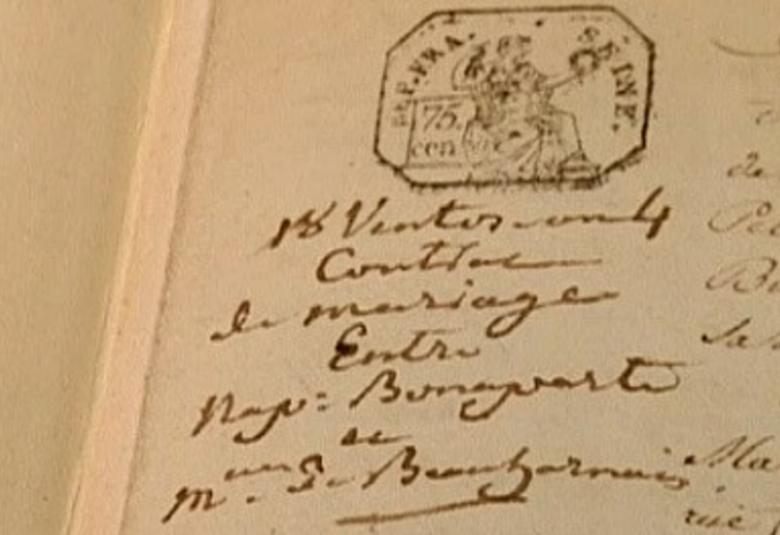 REP. FRA. SEINE.
75.
cen
18 Ventos an 4
Contrat
de mariage
Entre
Nap: Bonaparte
et
Me. De Beauharnais